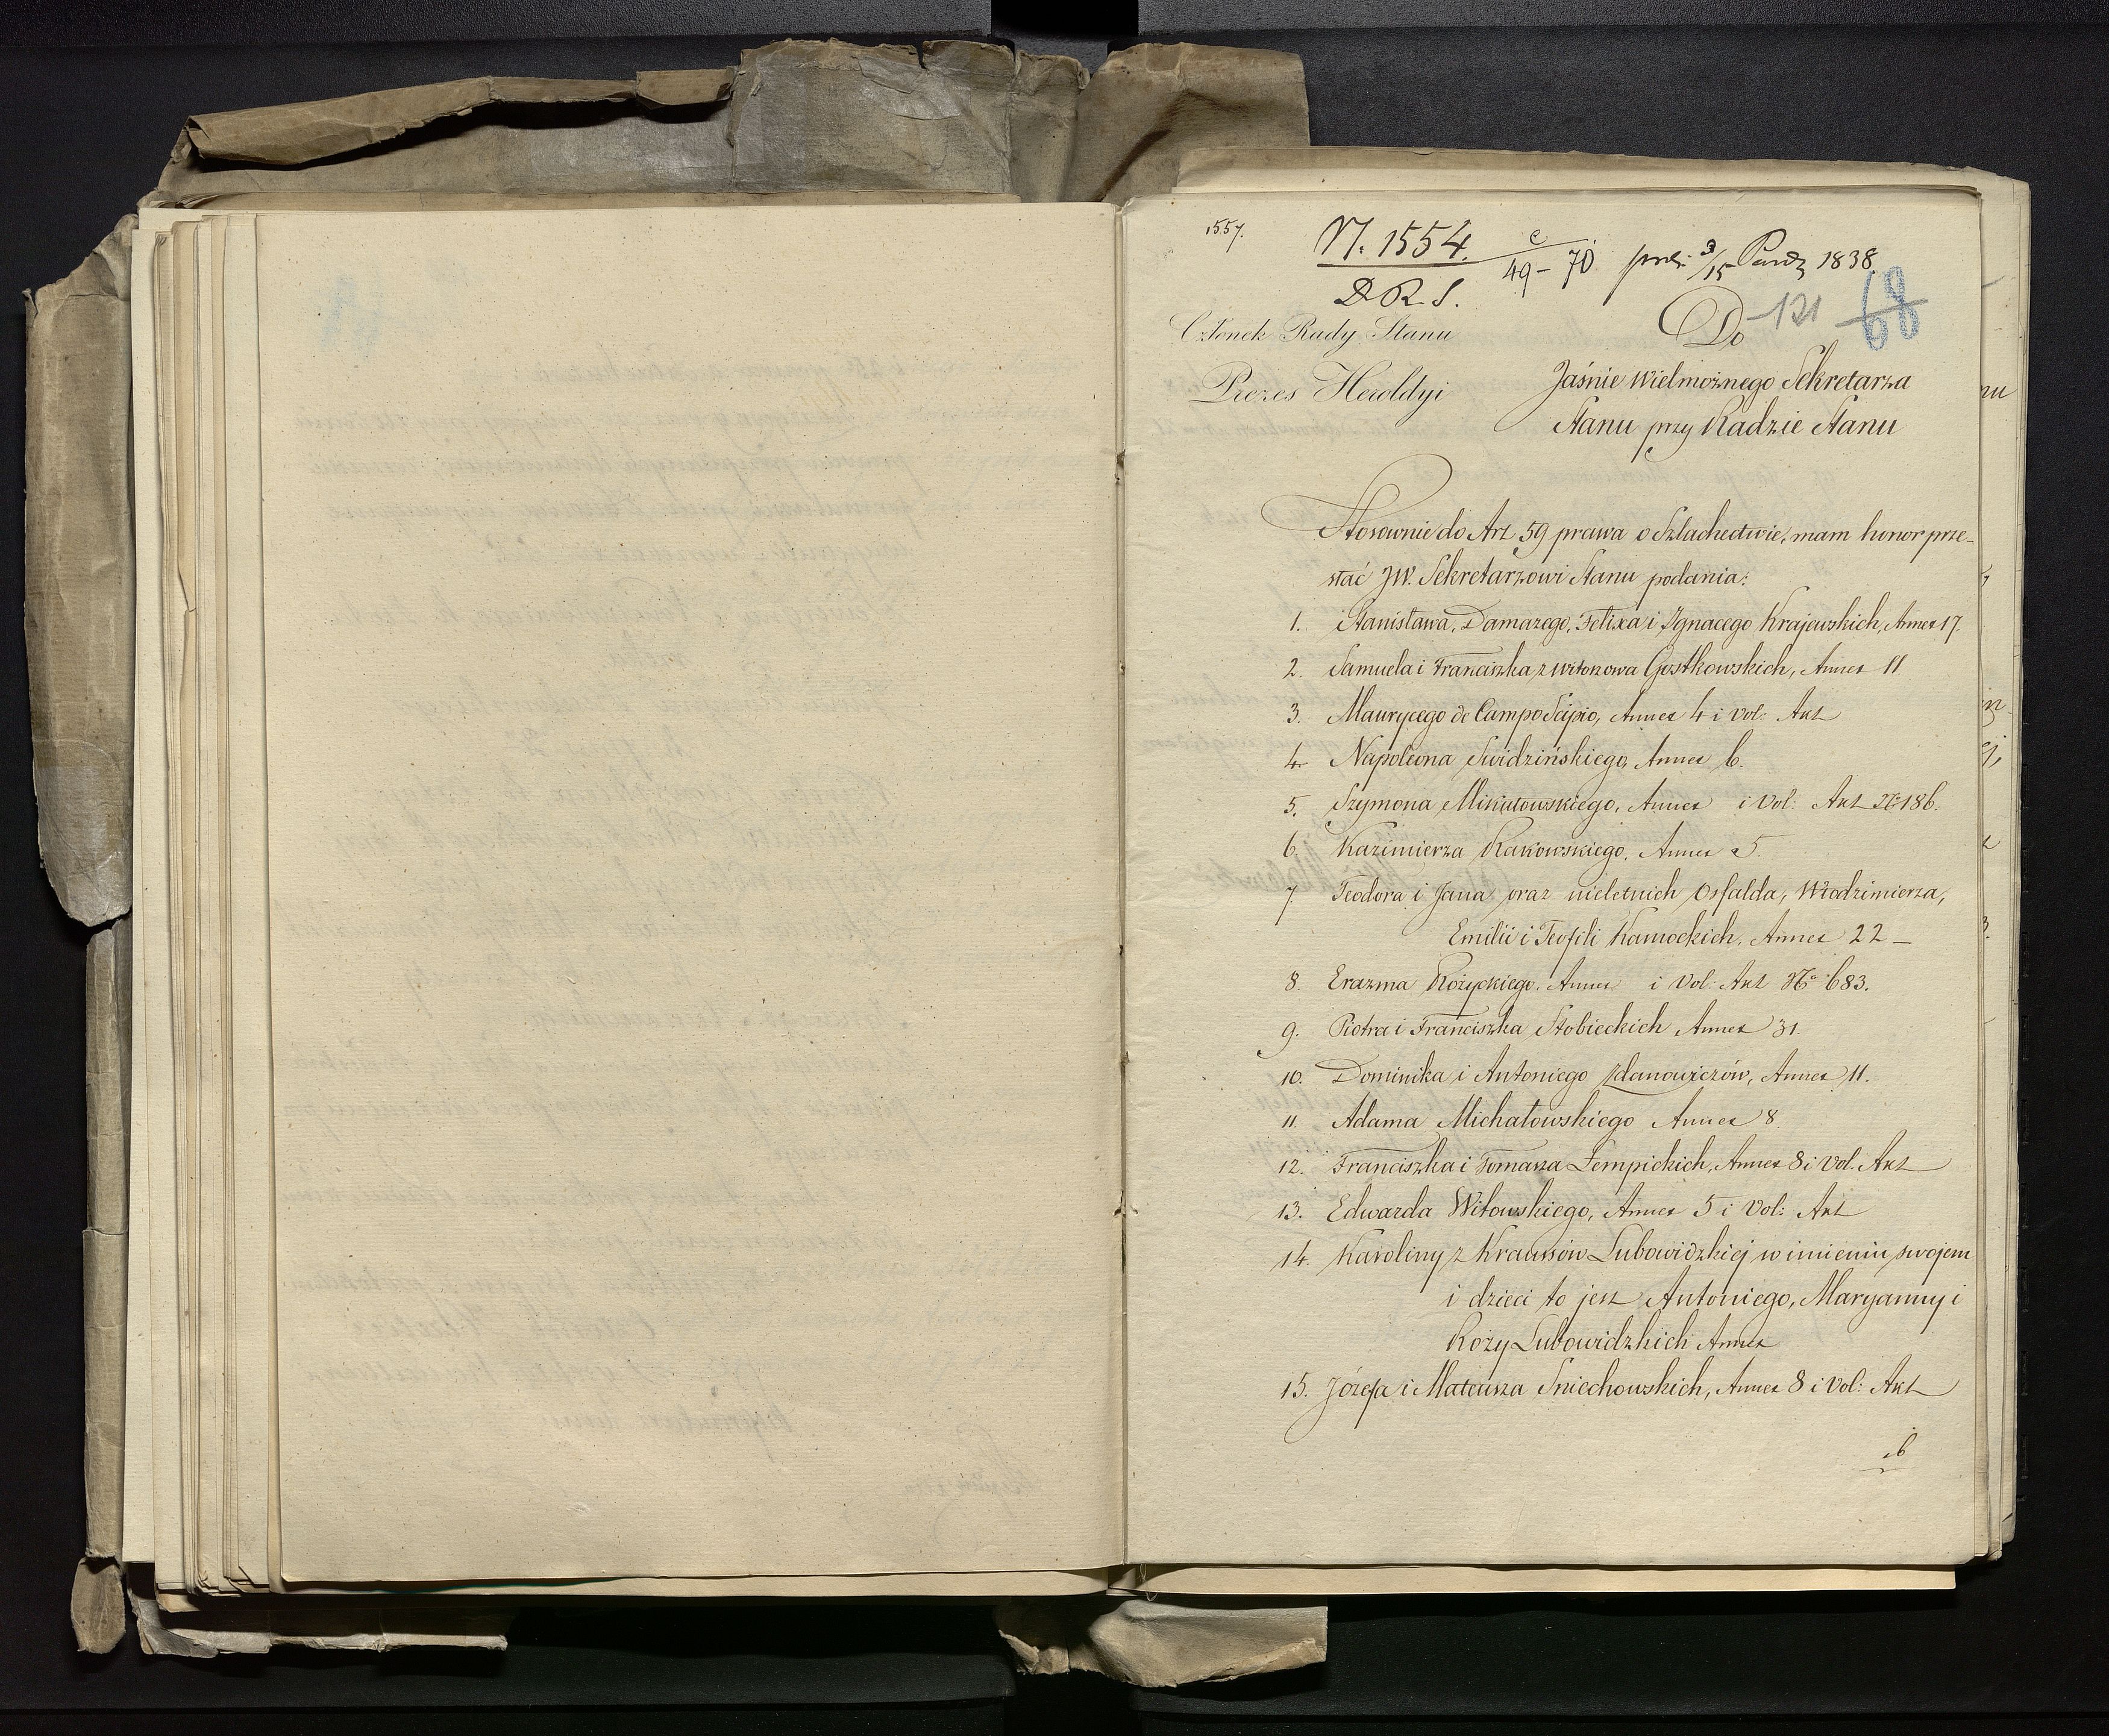 1557.
N. 1554.
D.R.S.
c
49-70 3/15 Paźdz 1838
Do
121
68
Członek Rady Stanu
Prezes Heroldyi
Jaśnie Wielmożnego Sekretarza
Stanu przy Radzie Stanu
Stosownie do Art 59 prawa o Szlachectwie, mam honor prze-
słać JW. Sekretarzowi Stanu podania:
1. Stanisława, Damazego, Felixa i Ignacego Krajewskich, Annex 17.
2. Samuela i Franciszka z Witonowa Gostkowskich, Annex 11
3. Maurycego de Campo Scipio, Annex 4 i Vol: Akt
4. Napoleona Swidzińskiego, Annex 6.
5. Szymona Mikułowskiego, Annex i Vol: Akt No 186.
6. Kazimierza Rakowskiego, Annex 5.
7. Teodora i Jana oraz nieletnich Osfalda, Włodzimierza,
Emilii i Teofili Kamockich, Annex 22 -
8. Erazma Różyckiego, Annex i Vol: Akt No 683.
9. Piotra i Franciszka Stobieckich Annex 31.
10. Dominika i Antoniego Zdanowiczów, Annex 11.
11. Adama Michałowskiego Annex 8.
12. Franciszka i Tomasza Łempickich, Annex 8 i Vol: Akt
13. Edwarda Witowskiego, Annex 5 i Vol: Akt
14. Karoliny z Kraussów Lubowidzkiej w imieniu swojem
i dzieci to jest Antoniego, Maryanny i
Rozy Lubowidzkich Annex
15. Józefa i Mateusza Sniechowskich, Annex 8 i Vol: Akt